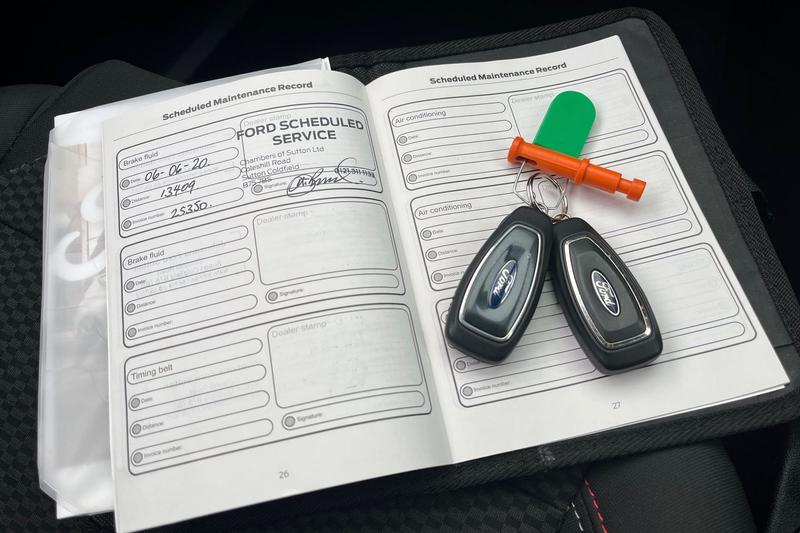 Scheduled Maintenance Record
Dealer stamp
FORD SCHEDULED
SERVICE
Brake fluid
Chambers of Sutton Ltd
Coleshill Road
Sutton Coldfield
B75 7BS
Date: 06-06-20
Distance: 13409
Invoice number: 25350.
Signature:
Brake fluid
Dealer stamp
Date:
Distance:
Invoice number:
Signature:
Timing belt
Dealer stamp
Date:
Distance:
Invoice number:
Signature:
26
Scheduled Maintenance Record
Air conditioning
Dealer stamp
Date:
Distance:
Invoice number:
Air conditioning
Date:
Distance:
Invoice number:
Date:
Invoice number:
27
Ford
Ford